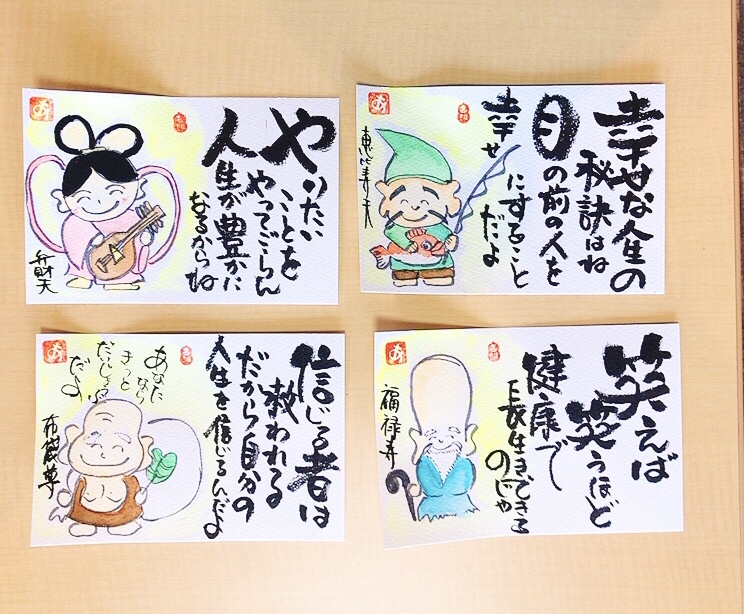 やりたい
ことを
やってごらん
人生が豊かに
なるからね
弁財天
あ
幸せな人生の
秘訣はね
目の前の人を
幸せ
にすること
だよ
恵比寿天
あ
信じる者は
救われる
だから自分の
人生を信じるんだよ
あなた
なら
きっと
だよ
布袋尊
あ
笑えば
笑うほど
健康で
長生きできる
のじゃ
福禄寿
あ